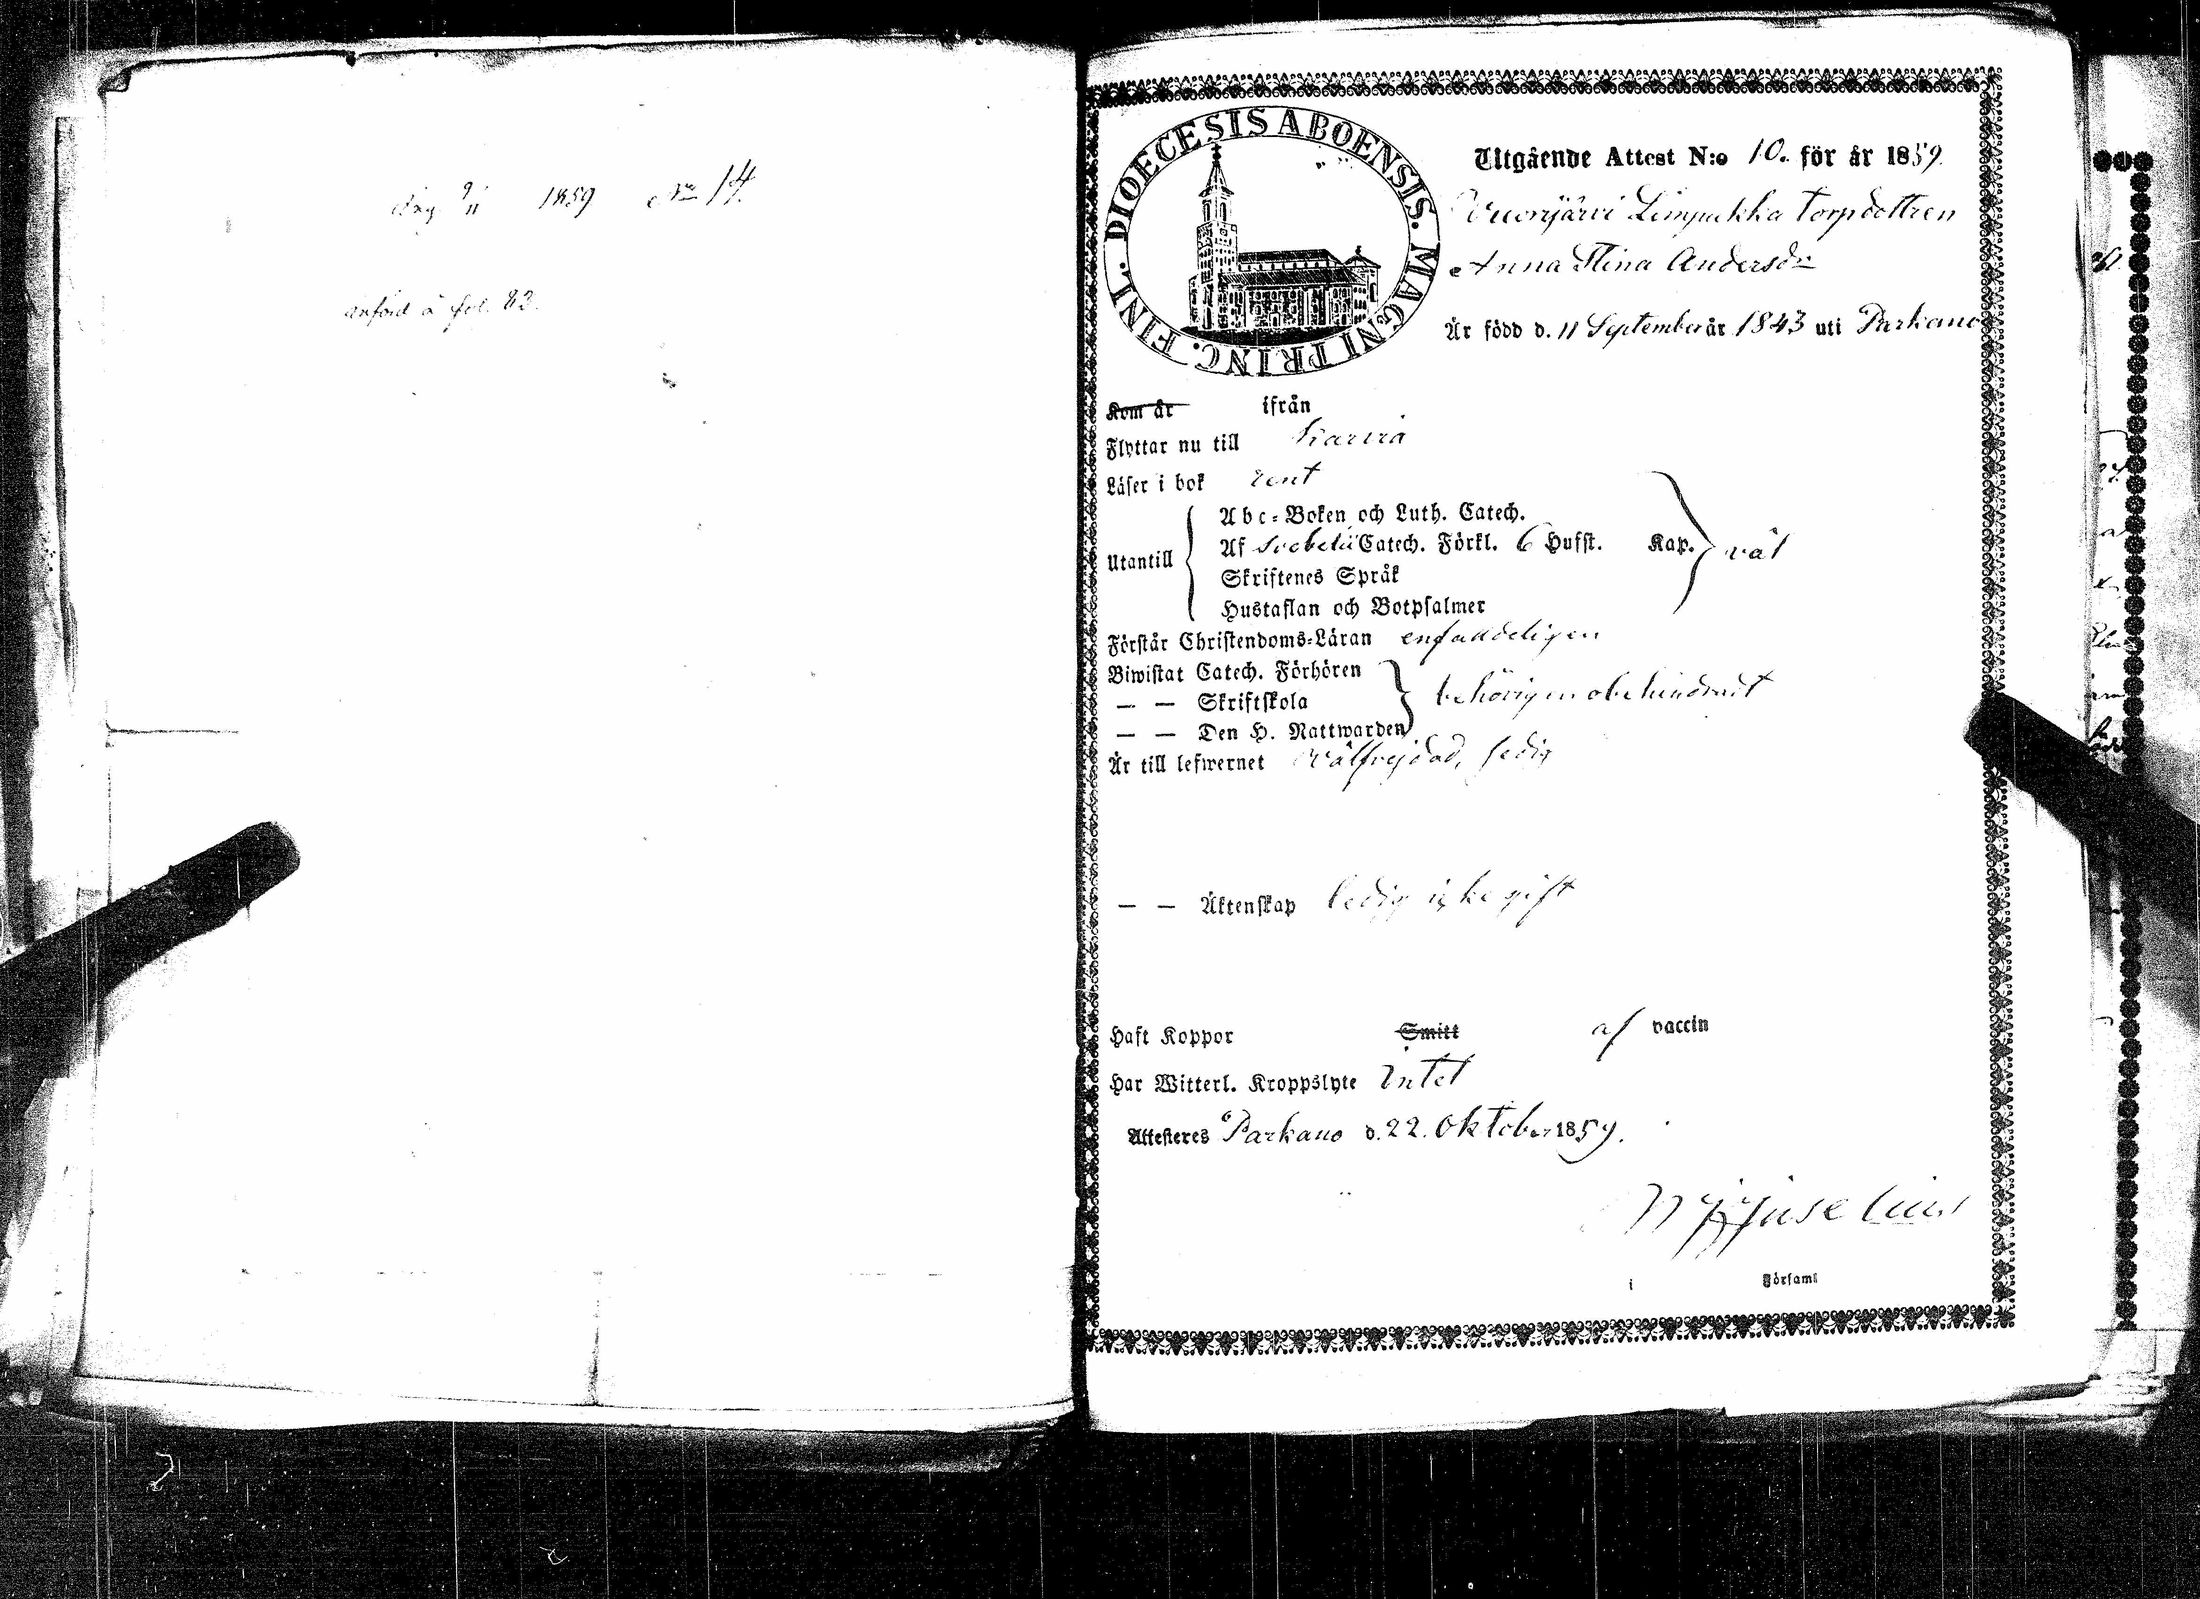 Ing 9/11 1859 No 14.
införd å fol. 82.
DIOECESIS ABOENSIS. MAGNI PRINC. FINL.
Utgående Attest N:o 10. för år 1859.
Vuorijärvi Limpukka torpdottren
Anna Stina Andersdr
Är född d. 11 September år 1843 uti Parkano
Kom år ifrån
Flyttar nu till Karvia
Läser i bok rent
Utantill
Abc-Boken och Luth. Catech.
Af Svebelii Catech. Förkl. 6 Hufst. Kap. väl
Skriftenes Språk
Hustaflan och Botpsalmer
Förstår Christendoms-Läran enfaldeligen
Biwistat Catech. Förhören
— — Skriftskola behörigen obehindradt
— — Den H. Nattwarden
Är till lefwernet välfrejdad, ledig
— — Äktenskap ledig icke gift
Haft Koppor Smitt af vaccin
Har Witterl. Kroppslyte intet
Attesteres Parkano d. 22. Oktober 1859.
i Församl